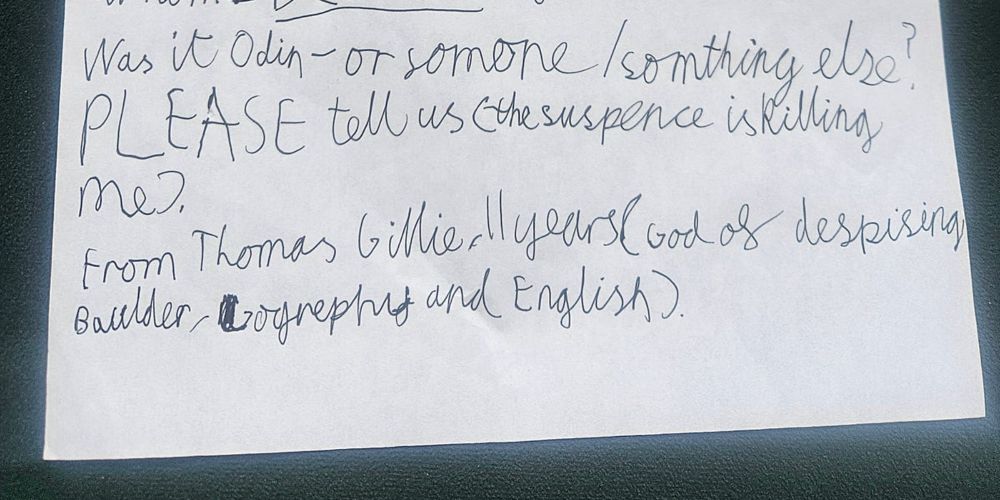 Was it Odin - or somone / somthing else?
PLEASE tell us (the suspence is killing
me).
From Thomas Gillie, 11 years (God of despising
Baulder, Gogrephy and English).